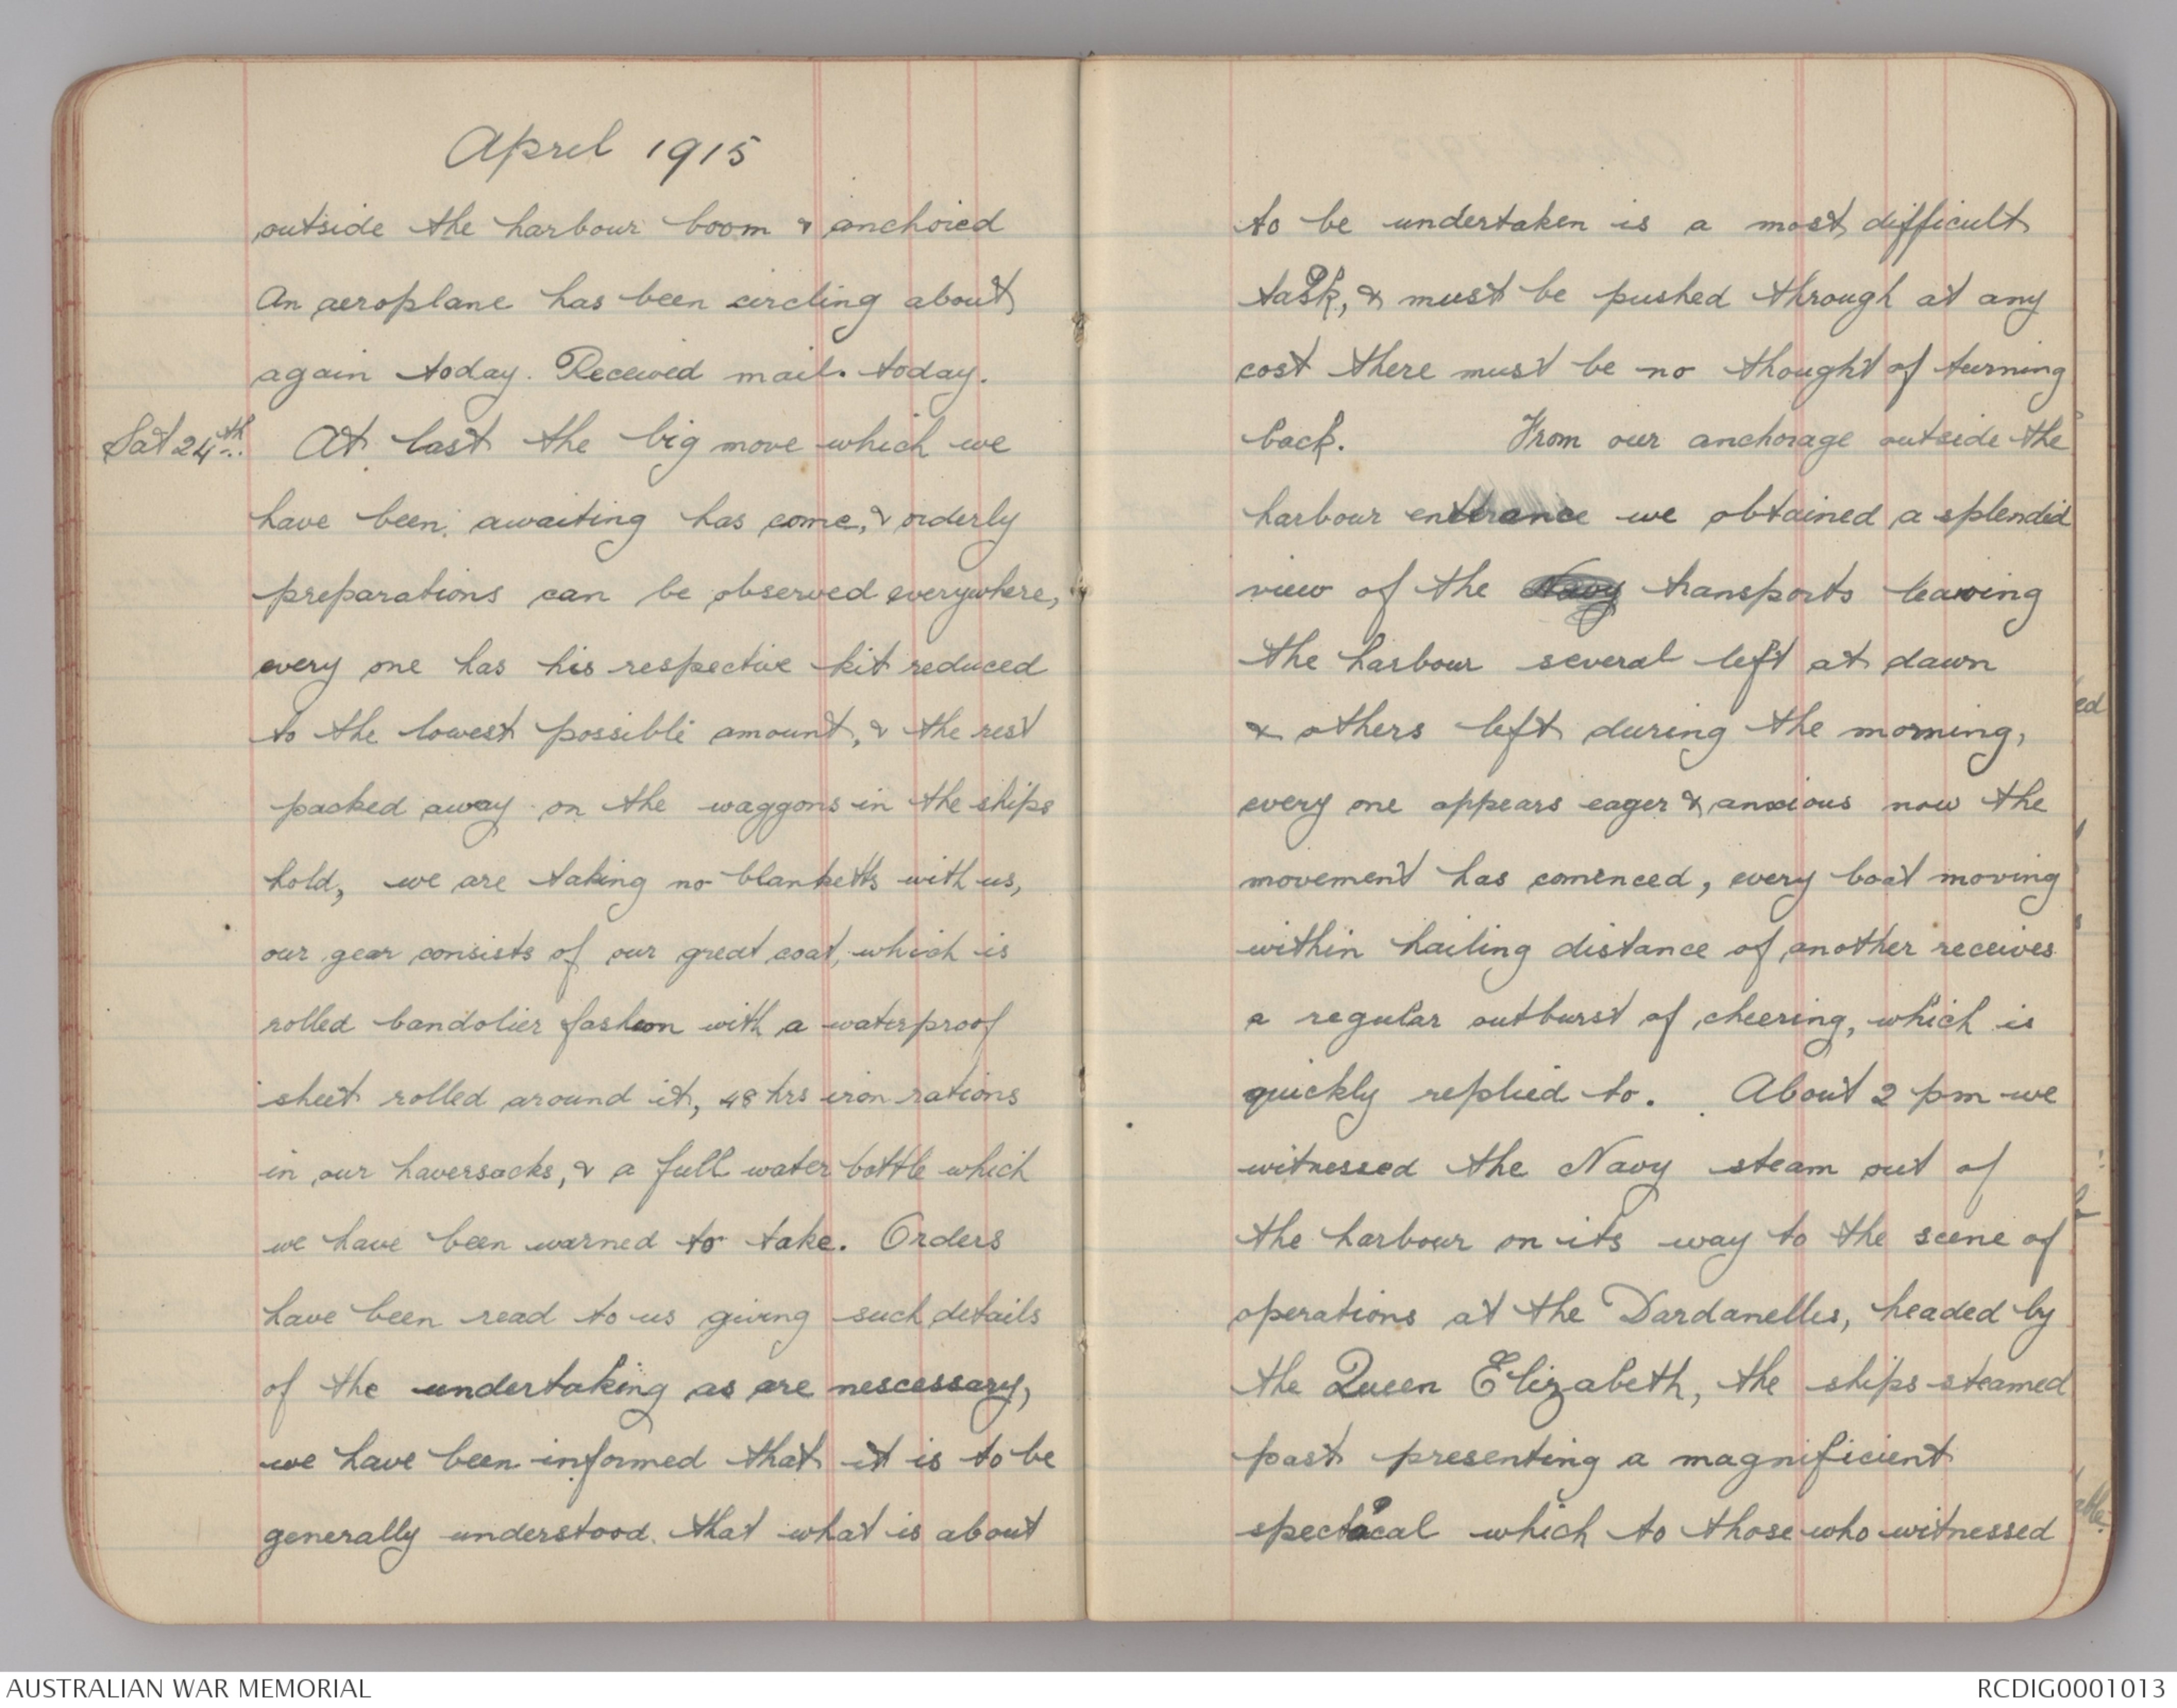 April 1915
outside the harbour boom & anchored
An aeroplane has been circling about
again today. Received mail. today.
Sat 24th. At last the big move which we
have been awaiting has come, & orderly
preparations can be observed everywhere,
every one has his respective kit reduced
to the lowest possible amount, & the rest
packed away on the waggons in the ships
hold, we are taking no blanketts with us,
our gear consists of our great coat, which is
rolled bandolier fashion with a waterproof
sheet rolled around it, 48 hrs iron rations
in our haversacks, & a full water bottle which
we have been warned to take. Orders
have been read to us giving such details
of the undertaking as are nescessary,
we have been informed that it is to be
generally understood that what is about
to be undertaken is a most difficult
task, & must be pushed through at any
cost there must be no thought of turning
back. From our anchorage outside the
harbour entrance we obtained a splendid
view of the Navy transports leaving
the harbour several left at dawn
& others left during the morning,
every one appears eager & anxious now the
movement has comenced, every boat moving
within hailing distance of another receives
a regular outburst of cheering, which is
quickly replied to. About 2 pm we
witnessed the Navy steam out of
the harbour on its way to the scene of
operations at the Dardanelles, headed by
the Queen Elizabeth, the ships steamed
past presenting a magnificient
spectacal which to those who witnessed
AUSTRALIAN WAR MEMORIAL
RCDIG0001013